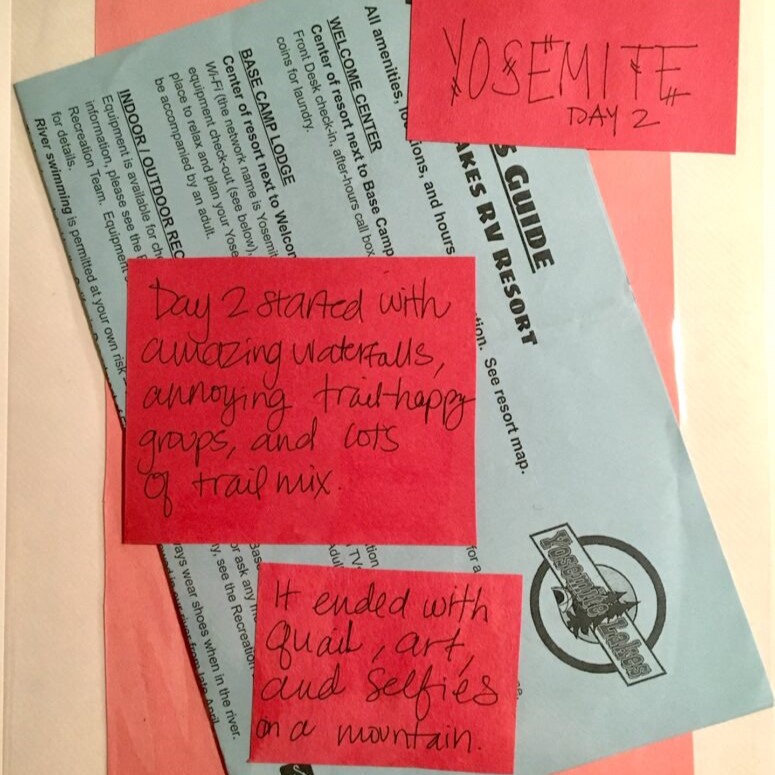 YOSEMITE
DAY 2
Day 2 started with
amazing waterfalls,
annoying trail-happy
groups, and lots
of trail mix.
It ended with
quail, art,
and selfies
on a mountain.
S GUIDE
AKES RV RESORT
All amenities,
ions, and hours
tion. See resort map.
WELCOME CENTER
Center of resort next to Base Camp
Front Desk check-in, after-hours call box
coins for laundry.
BASE CAMP LODGE
Center of resort next to Welcom
Wi-Fi (the network name is Yosemit
equipment check-out (see below),
place to relax and plan your Yose
be accompanied by an adult.
INDOOR / OUTDOOR REC
Equipment is available for che
information, please see the
Recreation Team. Equipment
for details.
River swimming is permitted at your own risk
ways wear shoes when in the river.
or ask any
see the Recreation
Yosemite Lakes